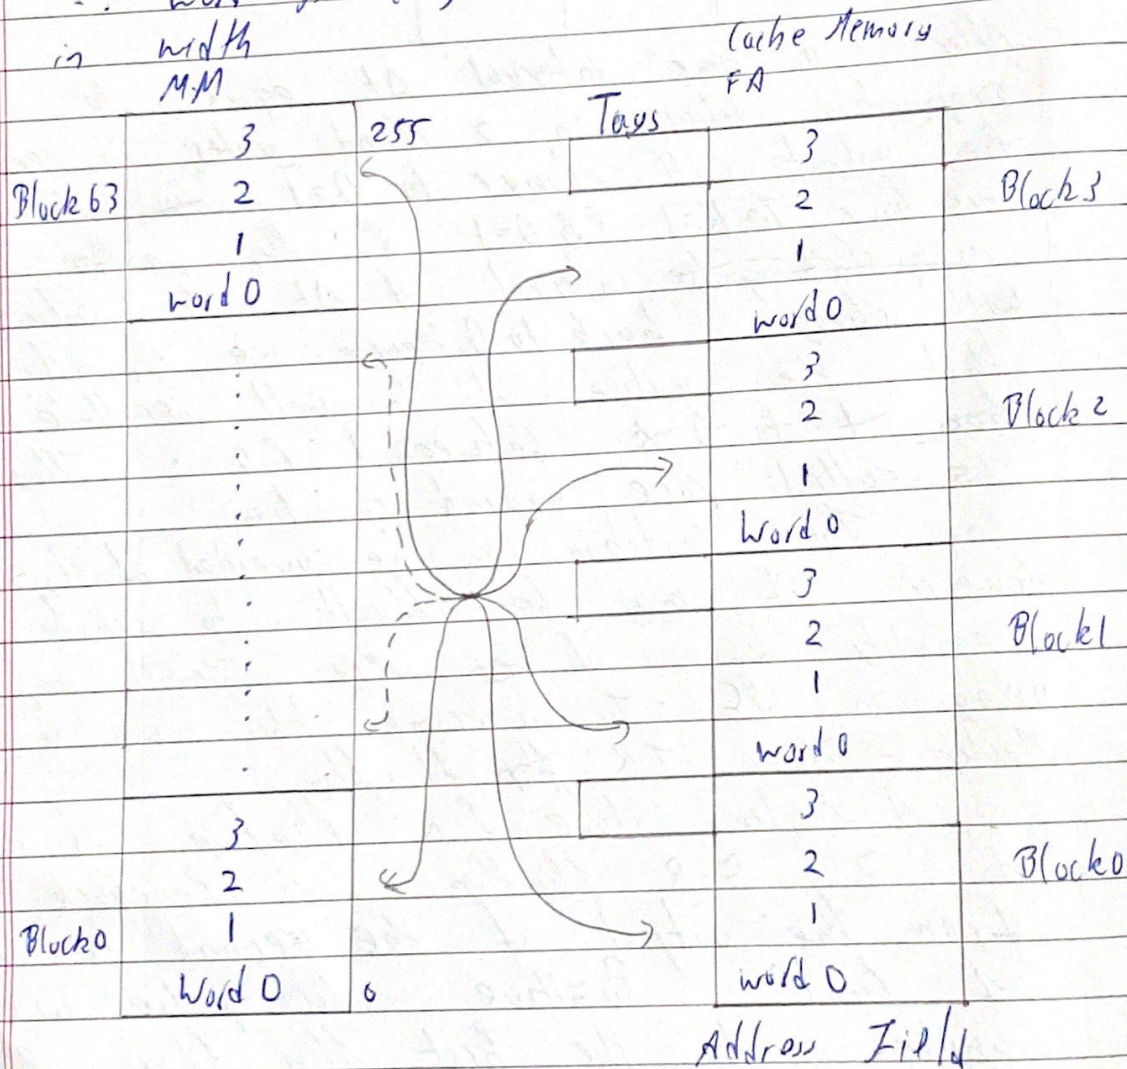 in width
M.M
Cache Memory
FA
Tags
255
Block 63
3
2
1
word 0
Block 0
3
2
1
Word 0
0
3
2
1
word 0
Block 3
3
2
1
Word 0
Block 2
3
2
1
word 0
Block 1
3
2
1
word 0
Block 0
Address Field